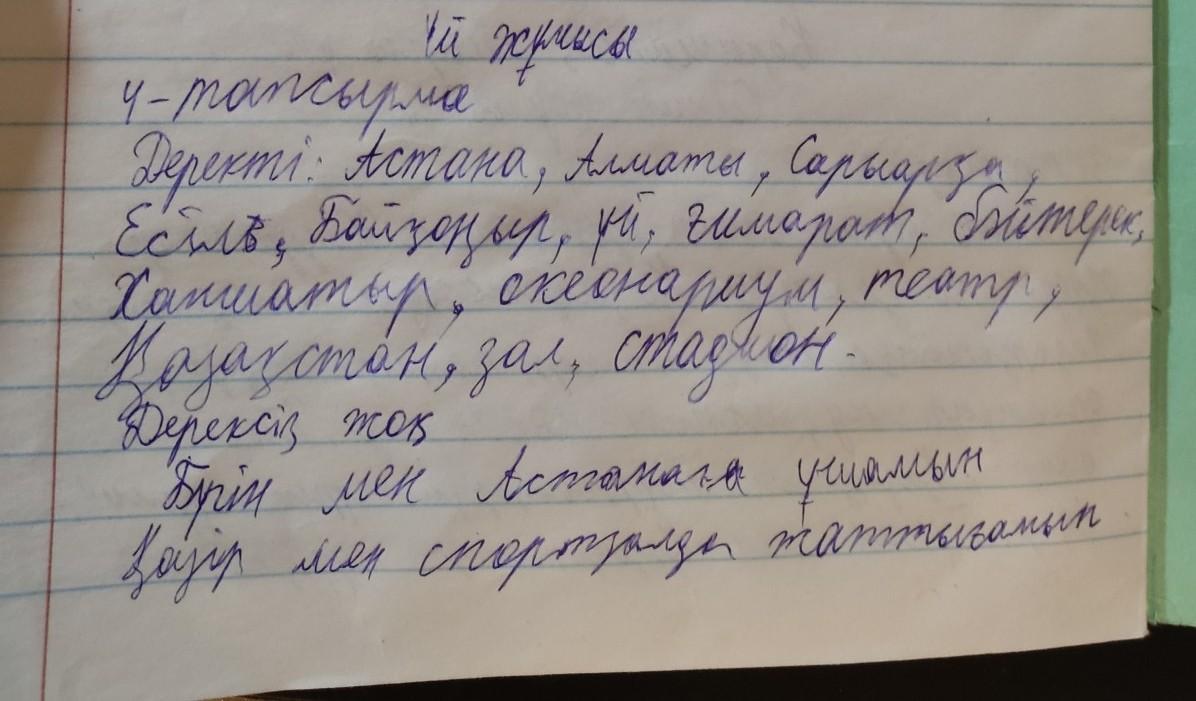 Үй жұмысы
4-тапсырма
Деректі: Астана, Алматы, Сарыарқа,
Есіль, Байқоңыр, үй, ғимарат, бәйтерек,
Ханшатыр, океонариум, театр,
Қазақстан, зал, стадион.
Дерексіз жоқ
Бүгін мен Астанаға ұшамын
Қазір мен спортзалда жаттығамын